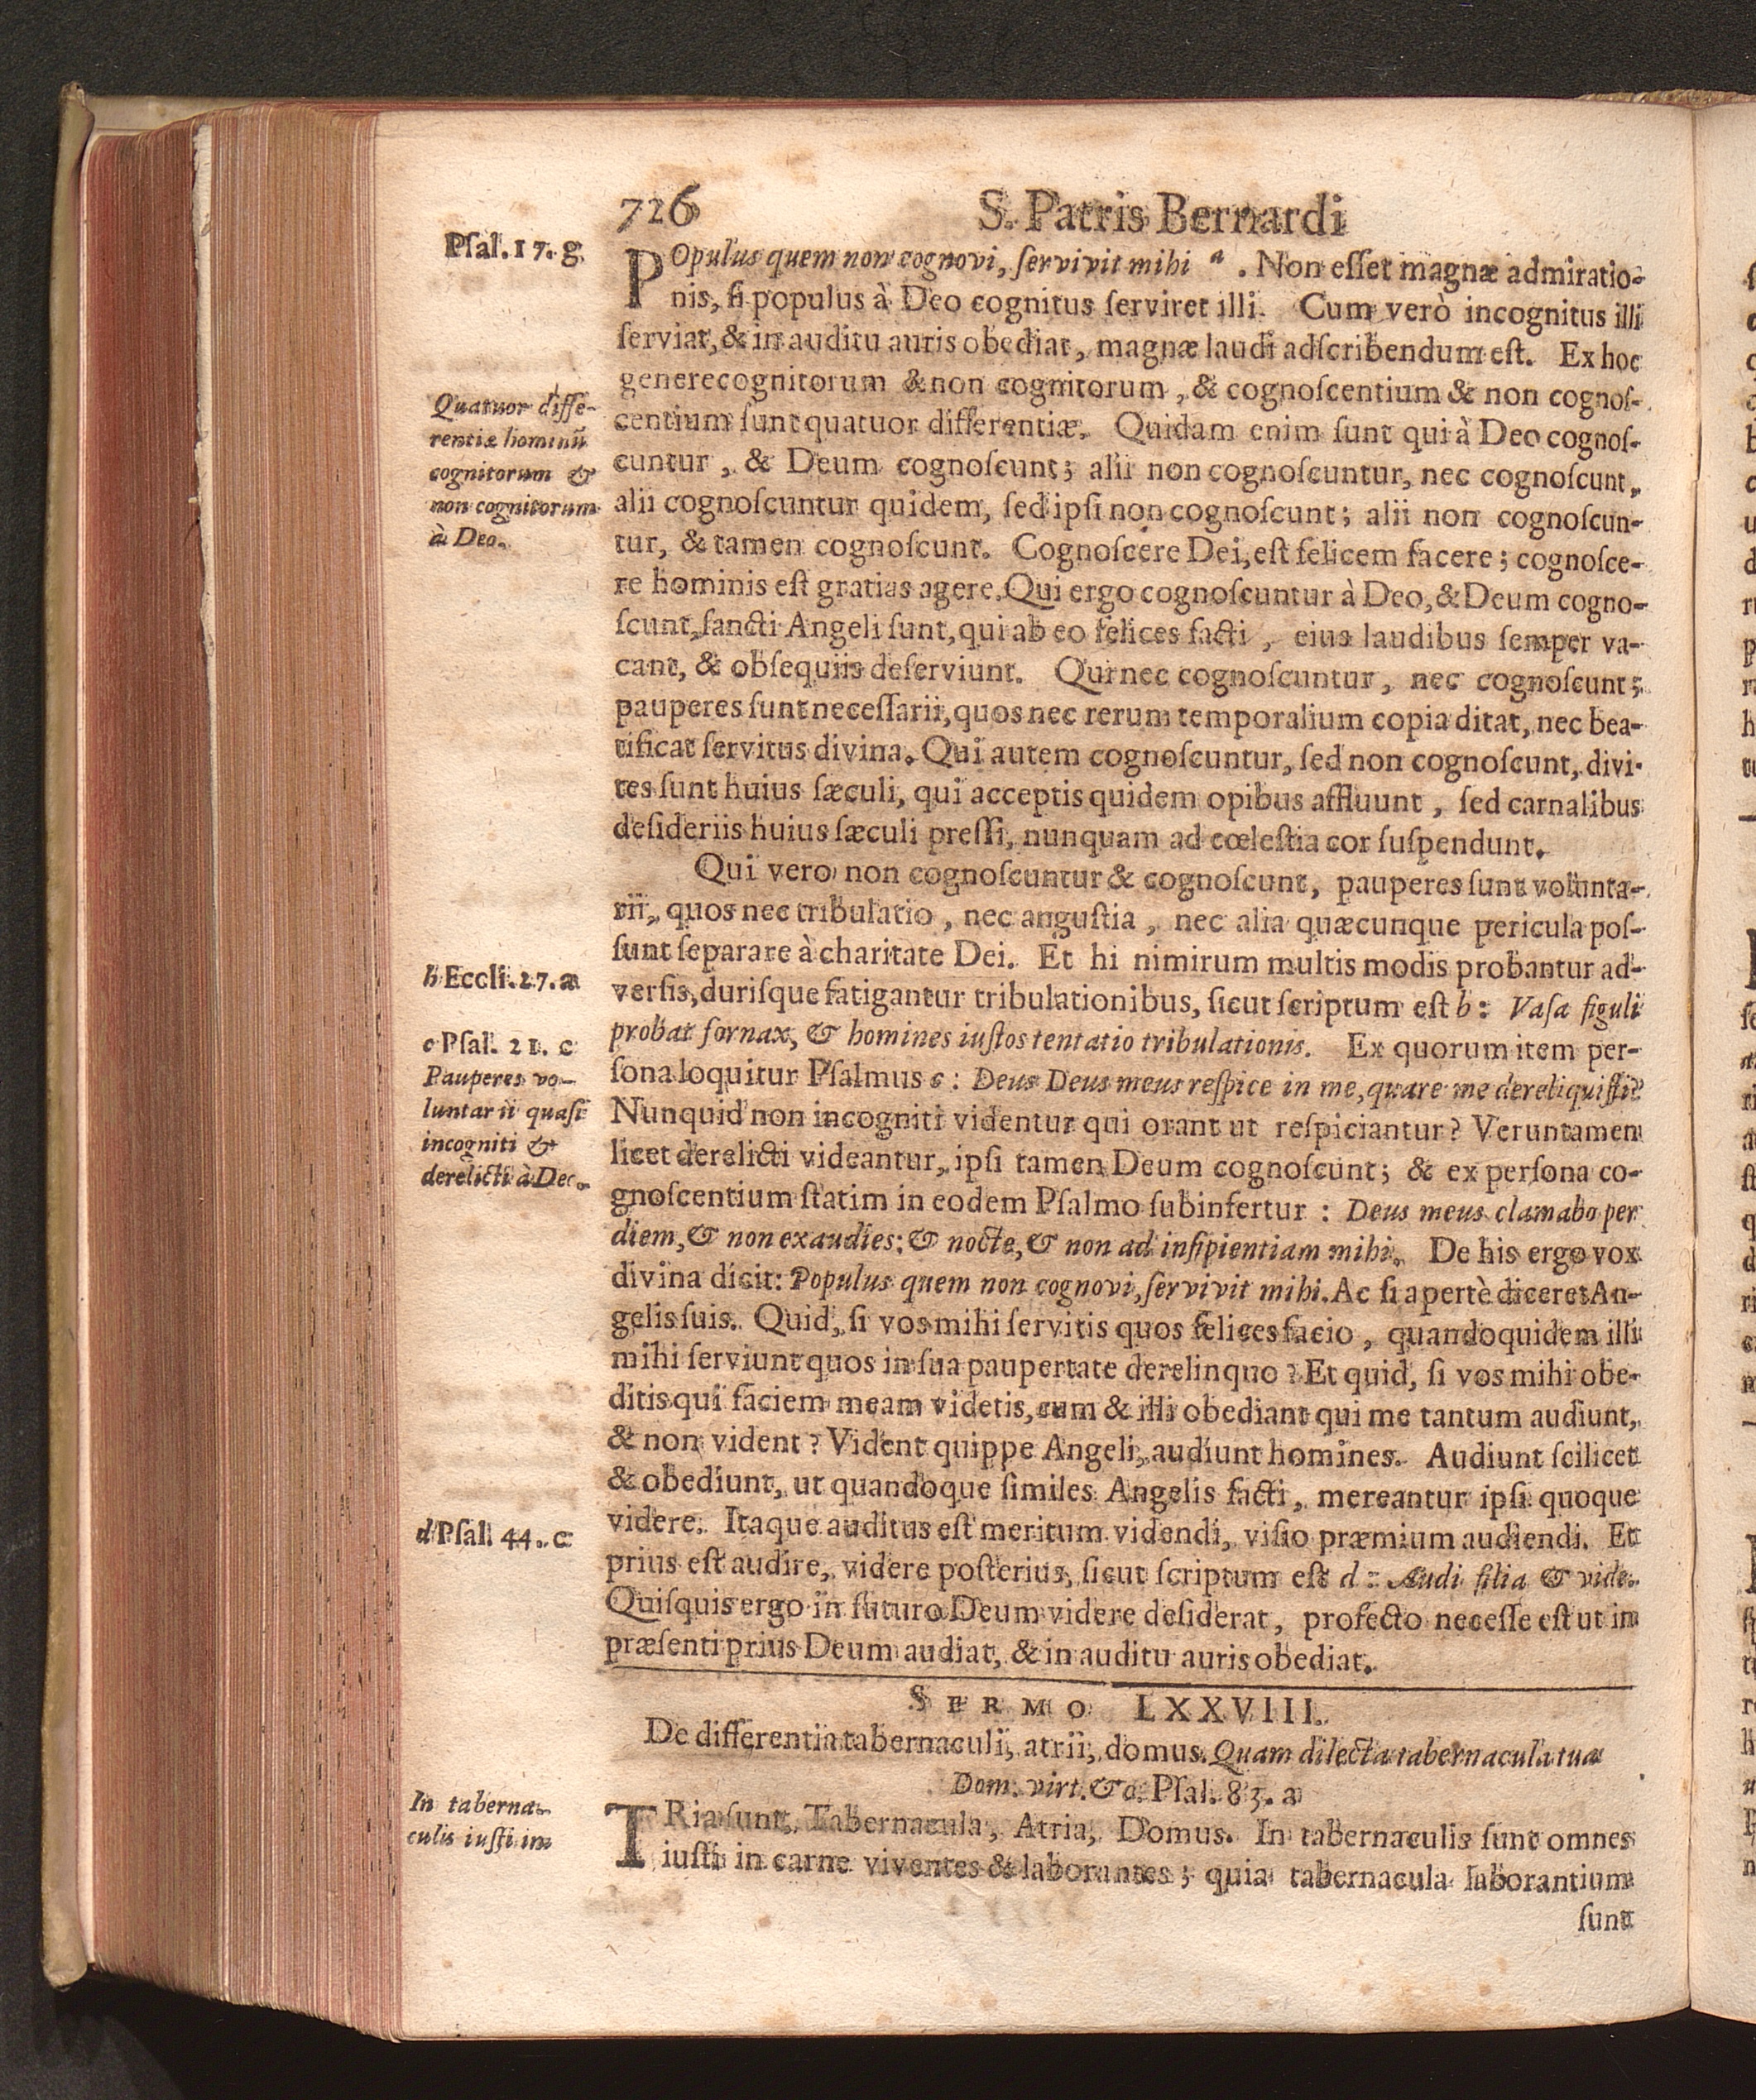 726 S. Patris Bernardi
Pſal. 17. g.
POpulus quem non cognovi, ſervivit mihi a. Non eſſet magnæ admiratio-
nis, ſi populus à Deo cognitus ſerviret illi. Cum verò incognitus illi
ſerviat, & in auditu auris obediat, magnæ laudi adſcribendum eſt. Ex hoc
genere cognitorum & non cognitorum, & cognoſcentium & non cognoſ-
centium ſunt quatuor differentiæ. Quidam enim ſunt qui à Deo cognoſ-
cuntur, & Deum cognoſcunt; alii non cognoſcuntur, nec cognoſcunt,
alii cognoſcuntur quidem, ſed ipſi non cognoſcunt; alii non cognoſcun-
tur, & tamen cognoſcunt. Cognoſcere Dei, eſt felicem facere; cognoſce-
re hominis eſt gratias agere. Qui ergo cognoſcuntur à Deo, & Deum cogno-
ſcunt, ſancti Angeli ſunt, qui ab eo felices facti, eius laudibus ſemper va-
cant, & obſequiis deſerviunt. Qui nec cognoſcuntur, nec cognoſcunt;
pauperes ſunt neceſſarii, quos nec rerum temporalium copia ditat, nec bea-
tificat ſervitus divina. Qui autem cognoſcuntur, ſed non cognoſcunt, divi-
tes ſunt huius ſæculi, qui acceptis quidem opibus affluunt, ſed carnalibus
deſideriis huius ſæculi preſſi, nunquam ad cœleſtia cor ſuſpendunt.
Qui vero non cognoſcuntur & cognoſcunt, pauperes ſunt volunta-
rii, quos nec tribulatio, nec anguſtia, nec alia quæcunque pericula poſ-
ſunt ſeparare à charitate Dei. Et hi nimirum multis modis probantur ad-
verſis, duriſque fatigantur tribulationibus, ſicut ſcriptum eſt b: Vaſa figuli
probat fornax, & homines iuſtos tentatio tribulationis. Ex quorum item per-
ſona loquitur Pſalmus c: Deus Deus meus reſpice in me, quare me dereliquiſti?
Nunquid non incogniti videntur qui orant ut reſpiciantur? Veruntamen
licet derelicti videantur, ipſi tamen Deum cognoſcunt; & ex perſona co-
gnoſcentium ſtatim in eodem Pſalmo ſubinfertur: Deus meus clamabo per
diem, & non exaudies: & nocte, & non ad inſipientiam mihi. De his ergo vox
divina dicit: Populus quem non cognovi, ſervivit mihi. Ac ſi apertè diceret An-
gelis ſuis. Quid, ſi vos mihi ſervitis quos felices facio, quandoquidem illi
mihi ſerviunt quos in ſua paupertate derelinquo? Et quid, ſi vos mihi obe-
ditis qui faciem meam videtis, cum & illi obediant qui me tantum audiunt,
& non vident? Vident quippe Angeli, audiunt homines. Audiunt ſcilicet
& obediunt, ut quandoque ſimiles Angelis facti, mereantur ipſi quoque
videre. Itaque auditus eſt meritum videndi, viſio præmium audiendi. Et
prius eſt audire, videre poſterius, ſicut ſcriptum eſt d: Audi filia & vide.
Quiſquis ergo in futuro Deum videre deſiderat, profecto neceſſe eſt ut in
præſenti prius Deum audiat, & in auditu auris obediat.
Quatuor diffe-
rentiæ hominū
cognitorum &
non cognitorum
à Deo.
b Eccli. 27. a
c Pſal. 21. c
Pauperes vo-
luntarii quaſi
incogniti &
derelicti à Deo.
d Pſal. 44. c
SERMO LXXVIII.
De differentia tabernaculi, atrii, domus. Quam dilecta tabernacula tua
Dom. virt. &c. Pſal. 83. a
TRia ſunt, Tabernacula, Atria, Domus. In tabernaculis ſunt omnes
iuſti in carne viventes & laborantes; quia tabernacula laborantium
ſunt
In taberna-
culis iuſti in